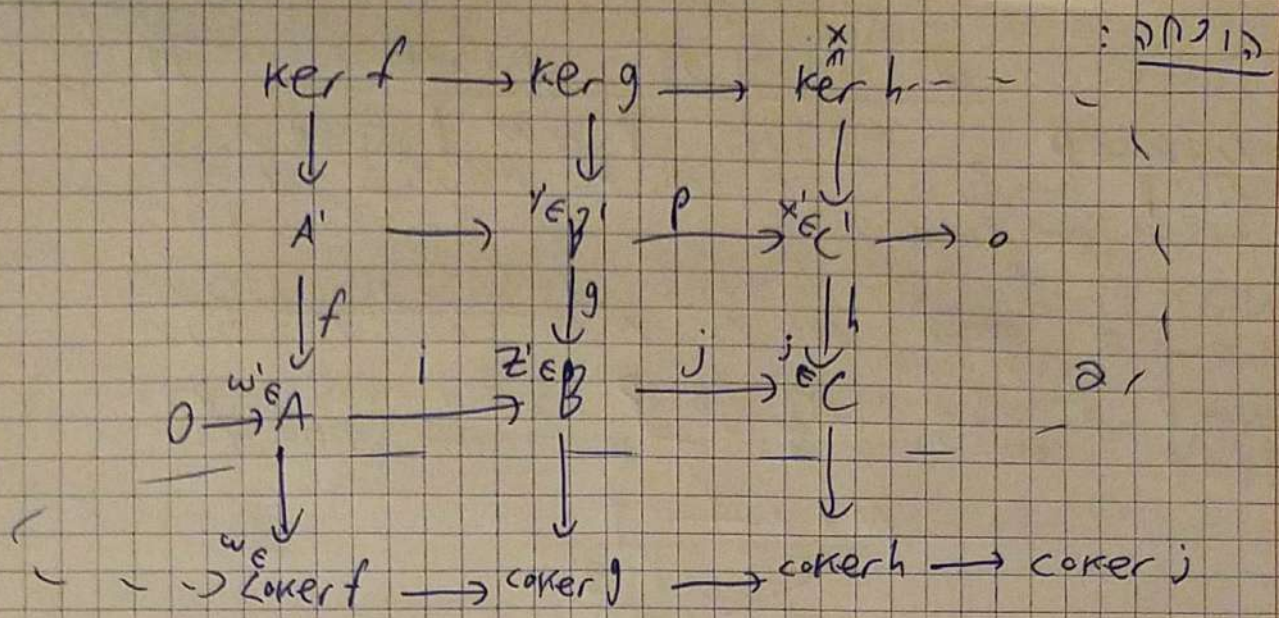 הוכחה:
x ∈
ker f → ker g → ker h
p
A' → y' ∈ B' → x' ∈ C' → 0
f g h
i j
0 → w' ∈ A → z' ∈ B → j ∈ C ∂
w ∈ coker f → coker g → coker h → coker j